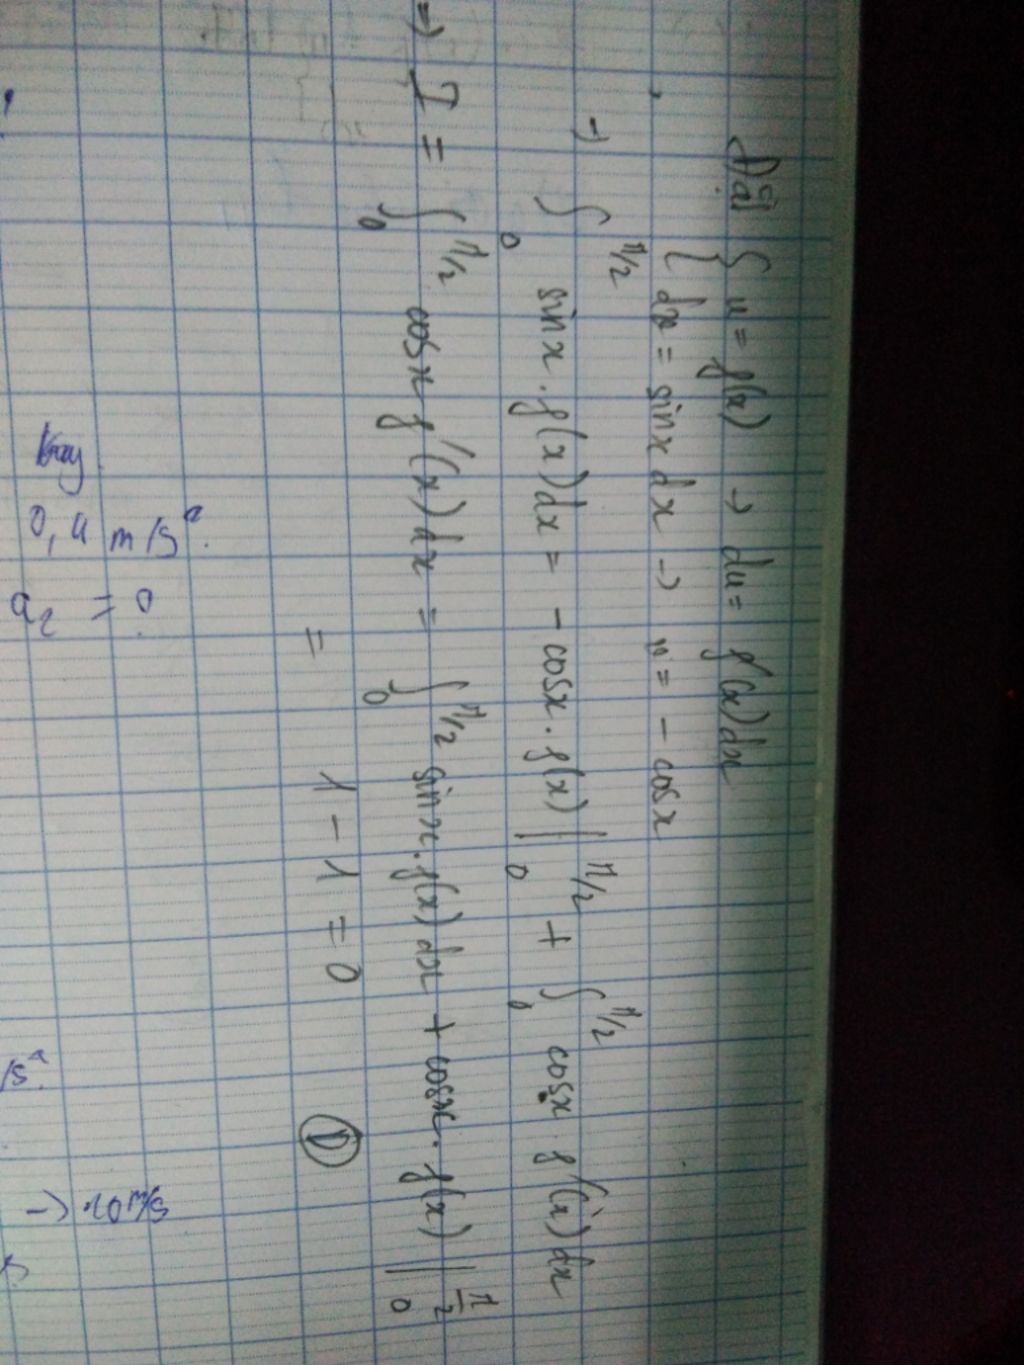 Đặt { u = f(x) → du = f'(x)dx
{ dv = sinx dx → v = - cosx
→ ∫₀^{π/2} sinx . f(x)dx = - cosx . f(x) |₀^{π/2} + ∫₀^{π/2} cosx . f'(x)dx
⇒ I = ∫₀^{π/2} cosx f'(x)dx = ∫₀^{π/2} sinx . f(x)dx + cosx . f(x) |₀^{π/2}
= 1 - 1 = 0 Ⓓ
0,4 m/s²
a₂ = ?
/s²
→ 20m/s